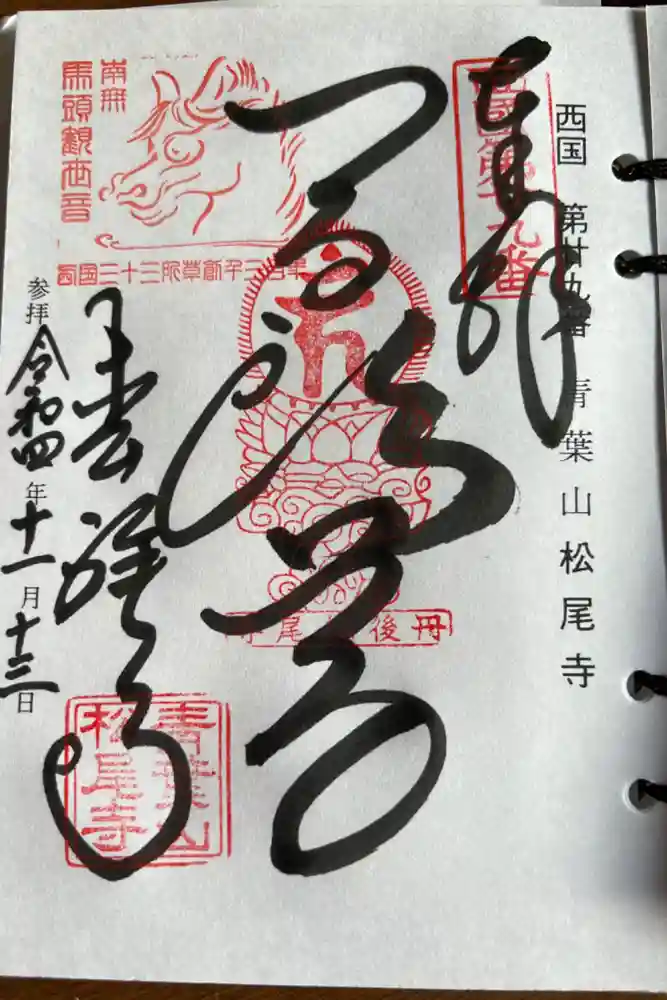 西国 第廿九番 青葉山 松尾寺
奉拝
西國第廿九番
南無
馬頭観世音
西国三十三所草創千三百年
丹後 松尾寺
青葉山
松尾寺
参拝 令和四年十一月十三日